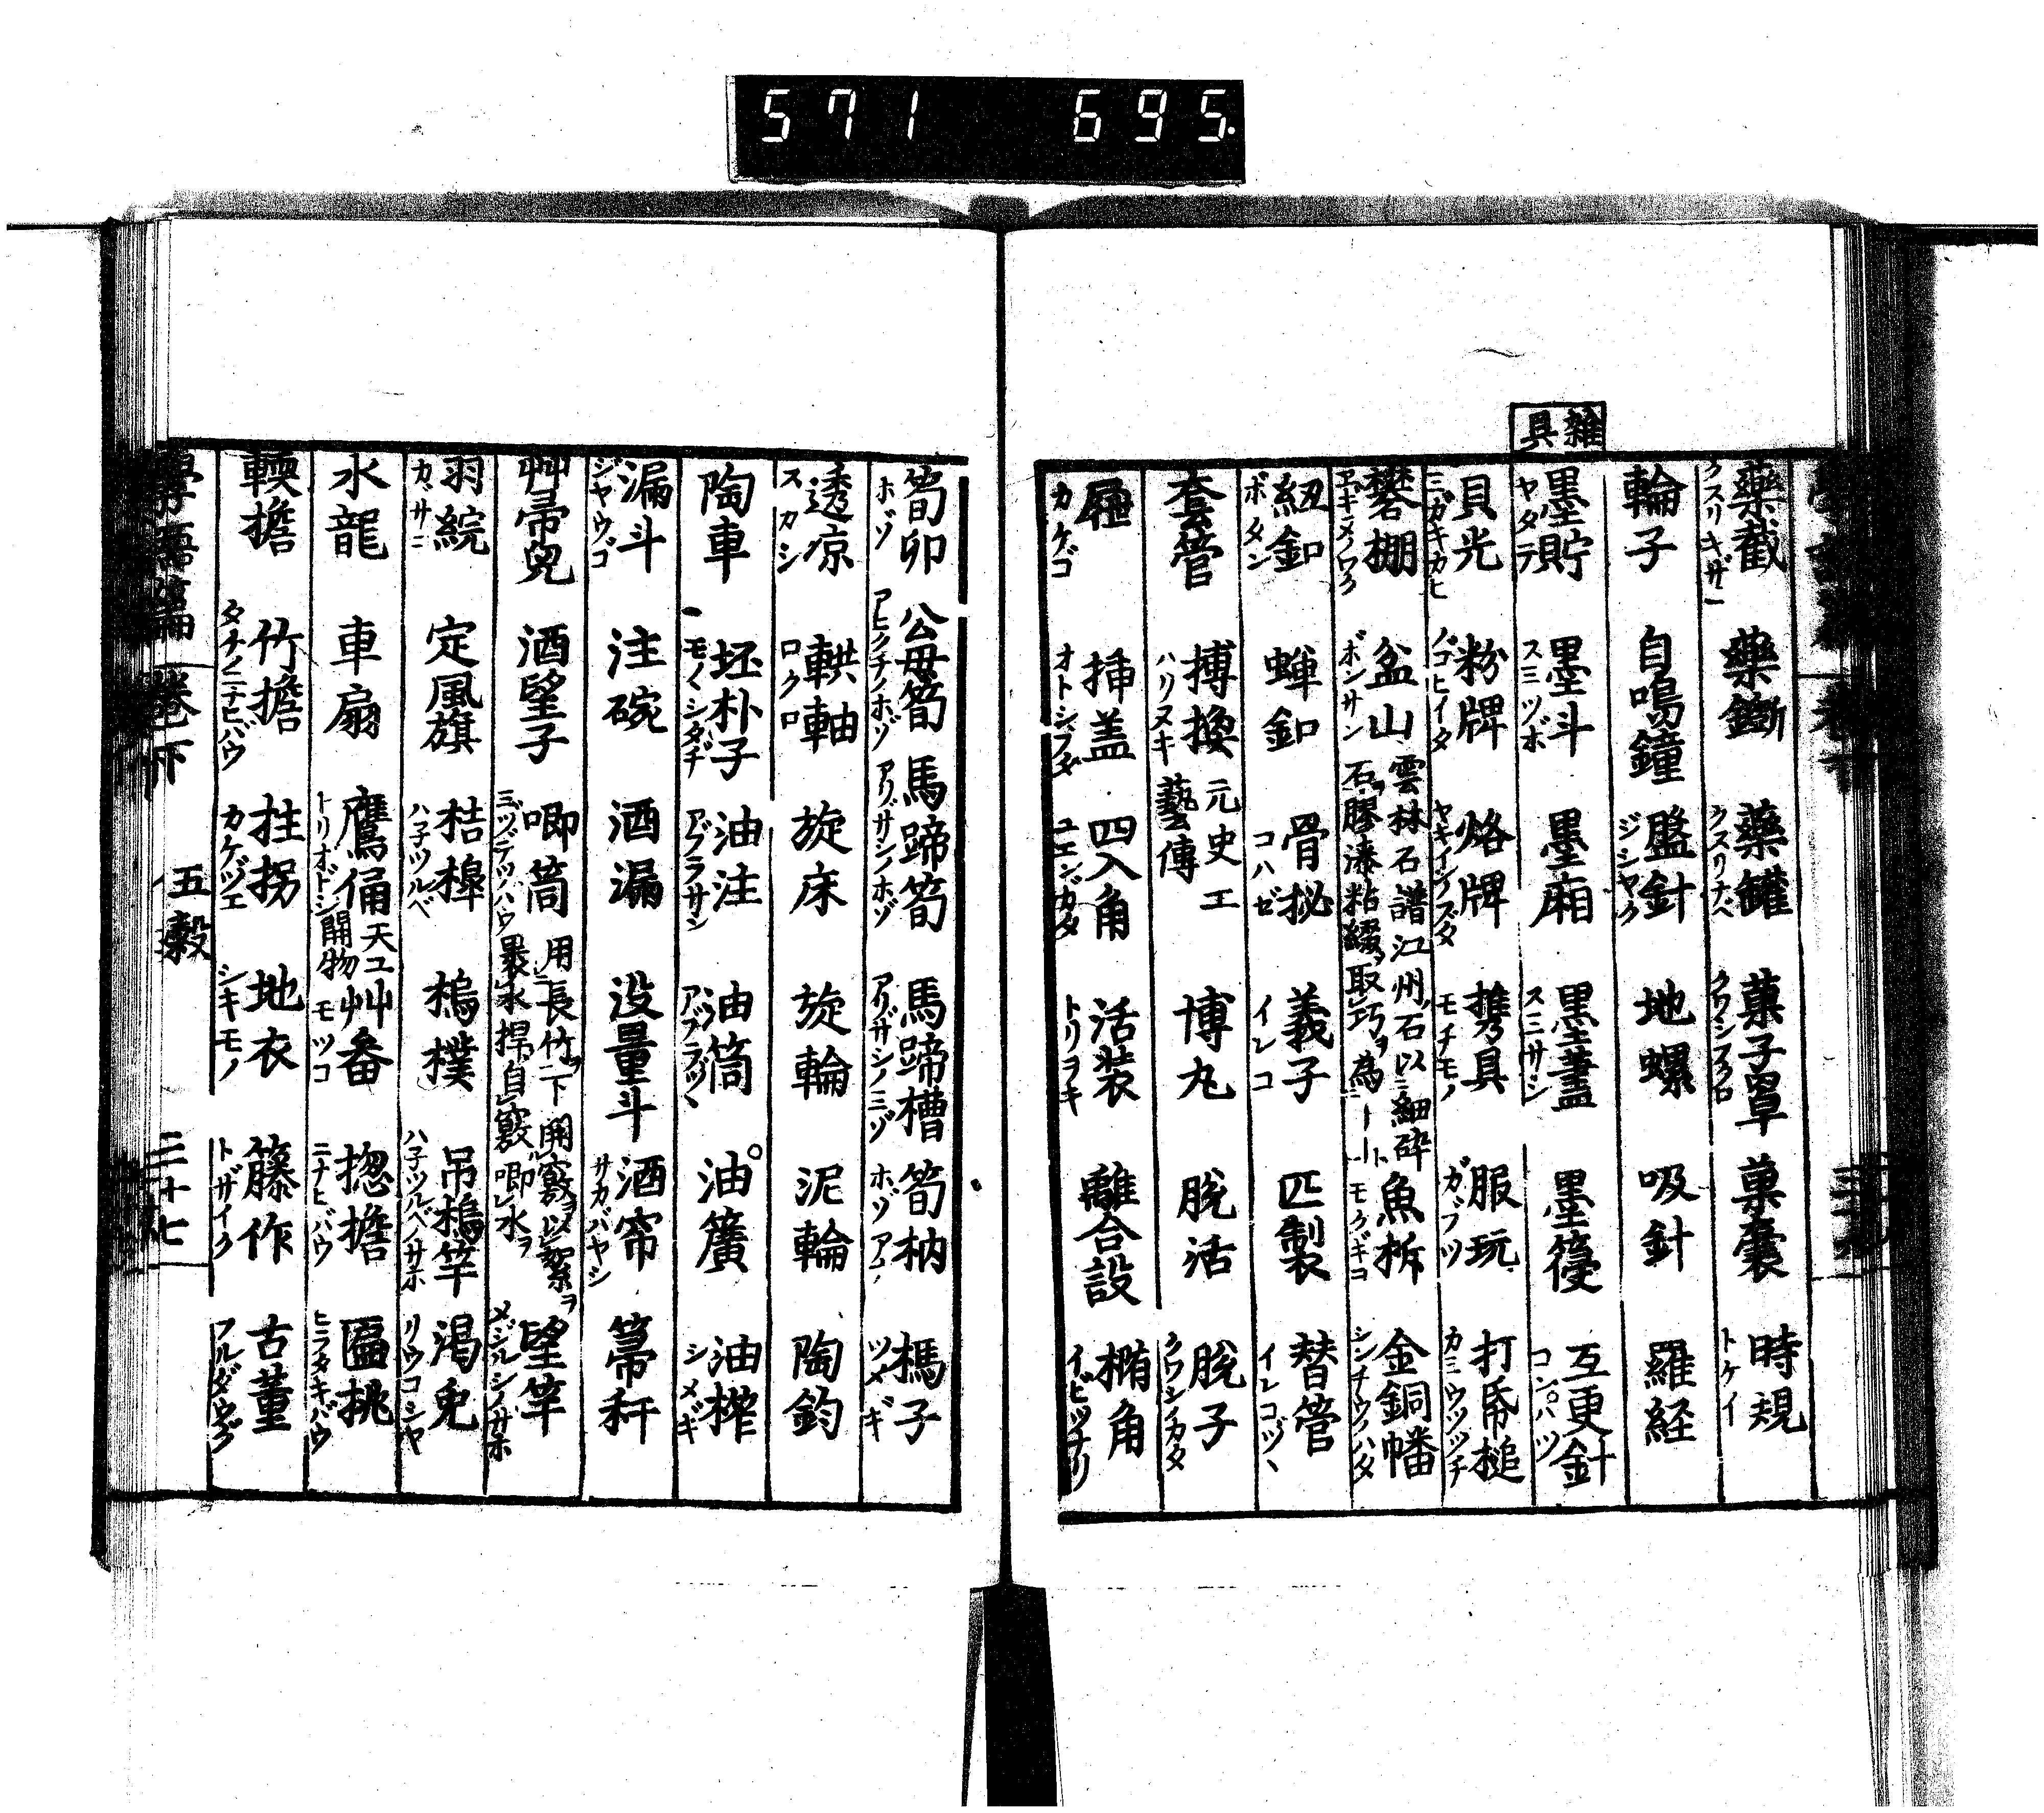 571 695.
雑具
藥截 クスリキザミ 藥鍘 藥罐 クスリナベ 菓子罩 クワシブクロ 菓嚢 時規 トケイ
輪子 自鳴鐘 盤針 ジシヤク 地螺 吸針 羅経
墨貯 ヤタテ 墨斗 スミツボ 墨廂 墨盡 スミサシ 墨籆 互更針 コンパツ
貝光 ミガキカヒ 粉牌 ノゴヒイタ 烙牌 携具 モチモノ 服玩 ガブツ 打帋槌 カミウツヅチ
礬棚 盆山 ボンサン 雲林石譜江州石以細碎石膠漆粘綴取巧為 魚柝 モクギヨ 金銅幡 シンチウノハタ
紐釦 ボタン 蝉釦 骨拯 コハゼ 義子 イレコ 匹製 替管 イレコヅヽ
套管 摶換 ハリヌキ 元史工藝傳 博丸 脱活 脱子 クワシノカタ
屜 カケゴ 挿盖 オトシブタ 四入角 活装 トリヲキ 離合設 椭角 イビツナリ
筍卯 ホゾ 公母筍 アヒクチノホゾ 馬蹄筍 アリザシノホゾ 馬蹄槽 アリザシノミゾ 筍枘 ホゾアナ 榪子 ツメギ
透凉 スカシ 軠軸 ロクロ 旋床 旋輪 泥輪 陶鈞
陶車 坯朴子 モノヽシタヂ 油注 アブラサシ 油筒 アブラヅヽ 油簴 油榨 シメギ
漏斗 ジヤウゴ 注碗 酒漏 没量斗 酒帘 サカバヤシ 箒秆
艸帚兒 酒望子 唧筒 ミヅデツハウ 用長竹下開竅以絮裹水捍自竅唧水 望竿 メジルシノサホ
羽綄 カザミ 定風旗 桔槔 ハ子ツルベ 槝撲 吊槝竿 ハ子ツルベノサホ 渇兔 リウコシヤ
水龍 車扇 鷹俑 トリオドシ 天工開物 艸畚 モツコ 揔擔 ニナヒバウ 匾挑
輭擔 竹擔 タケノニナヒバウ 拄拐 カケヅエ 地衣 シキモノ 籐作 トザイク 古董 フルダウグ
卷下 五穀 三十七